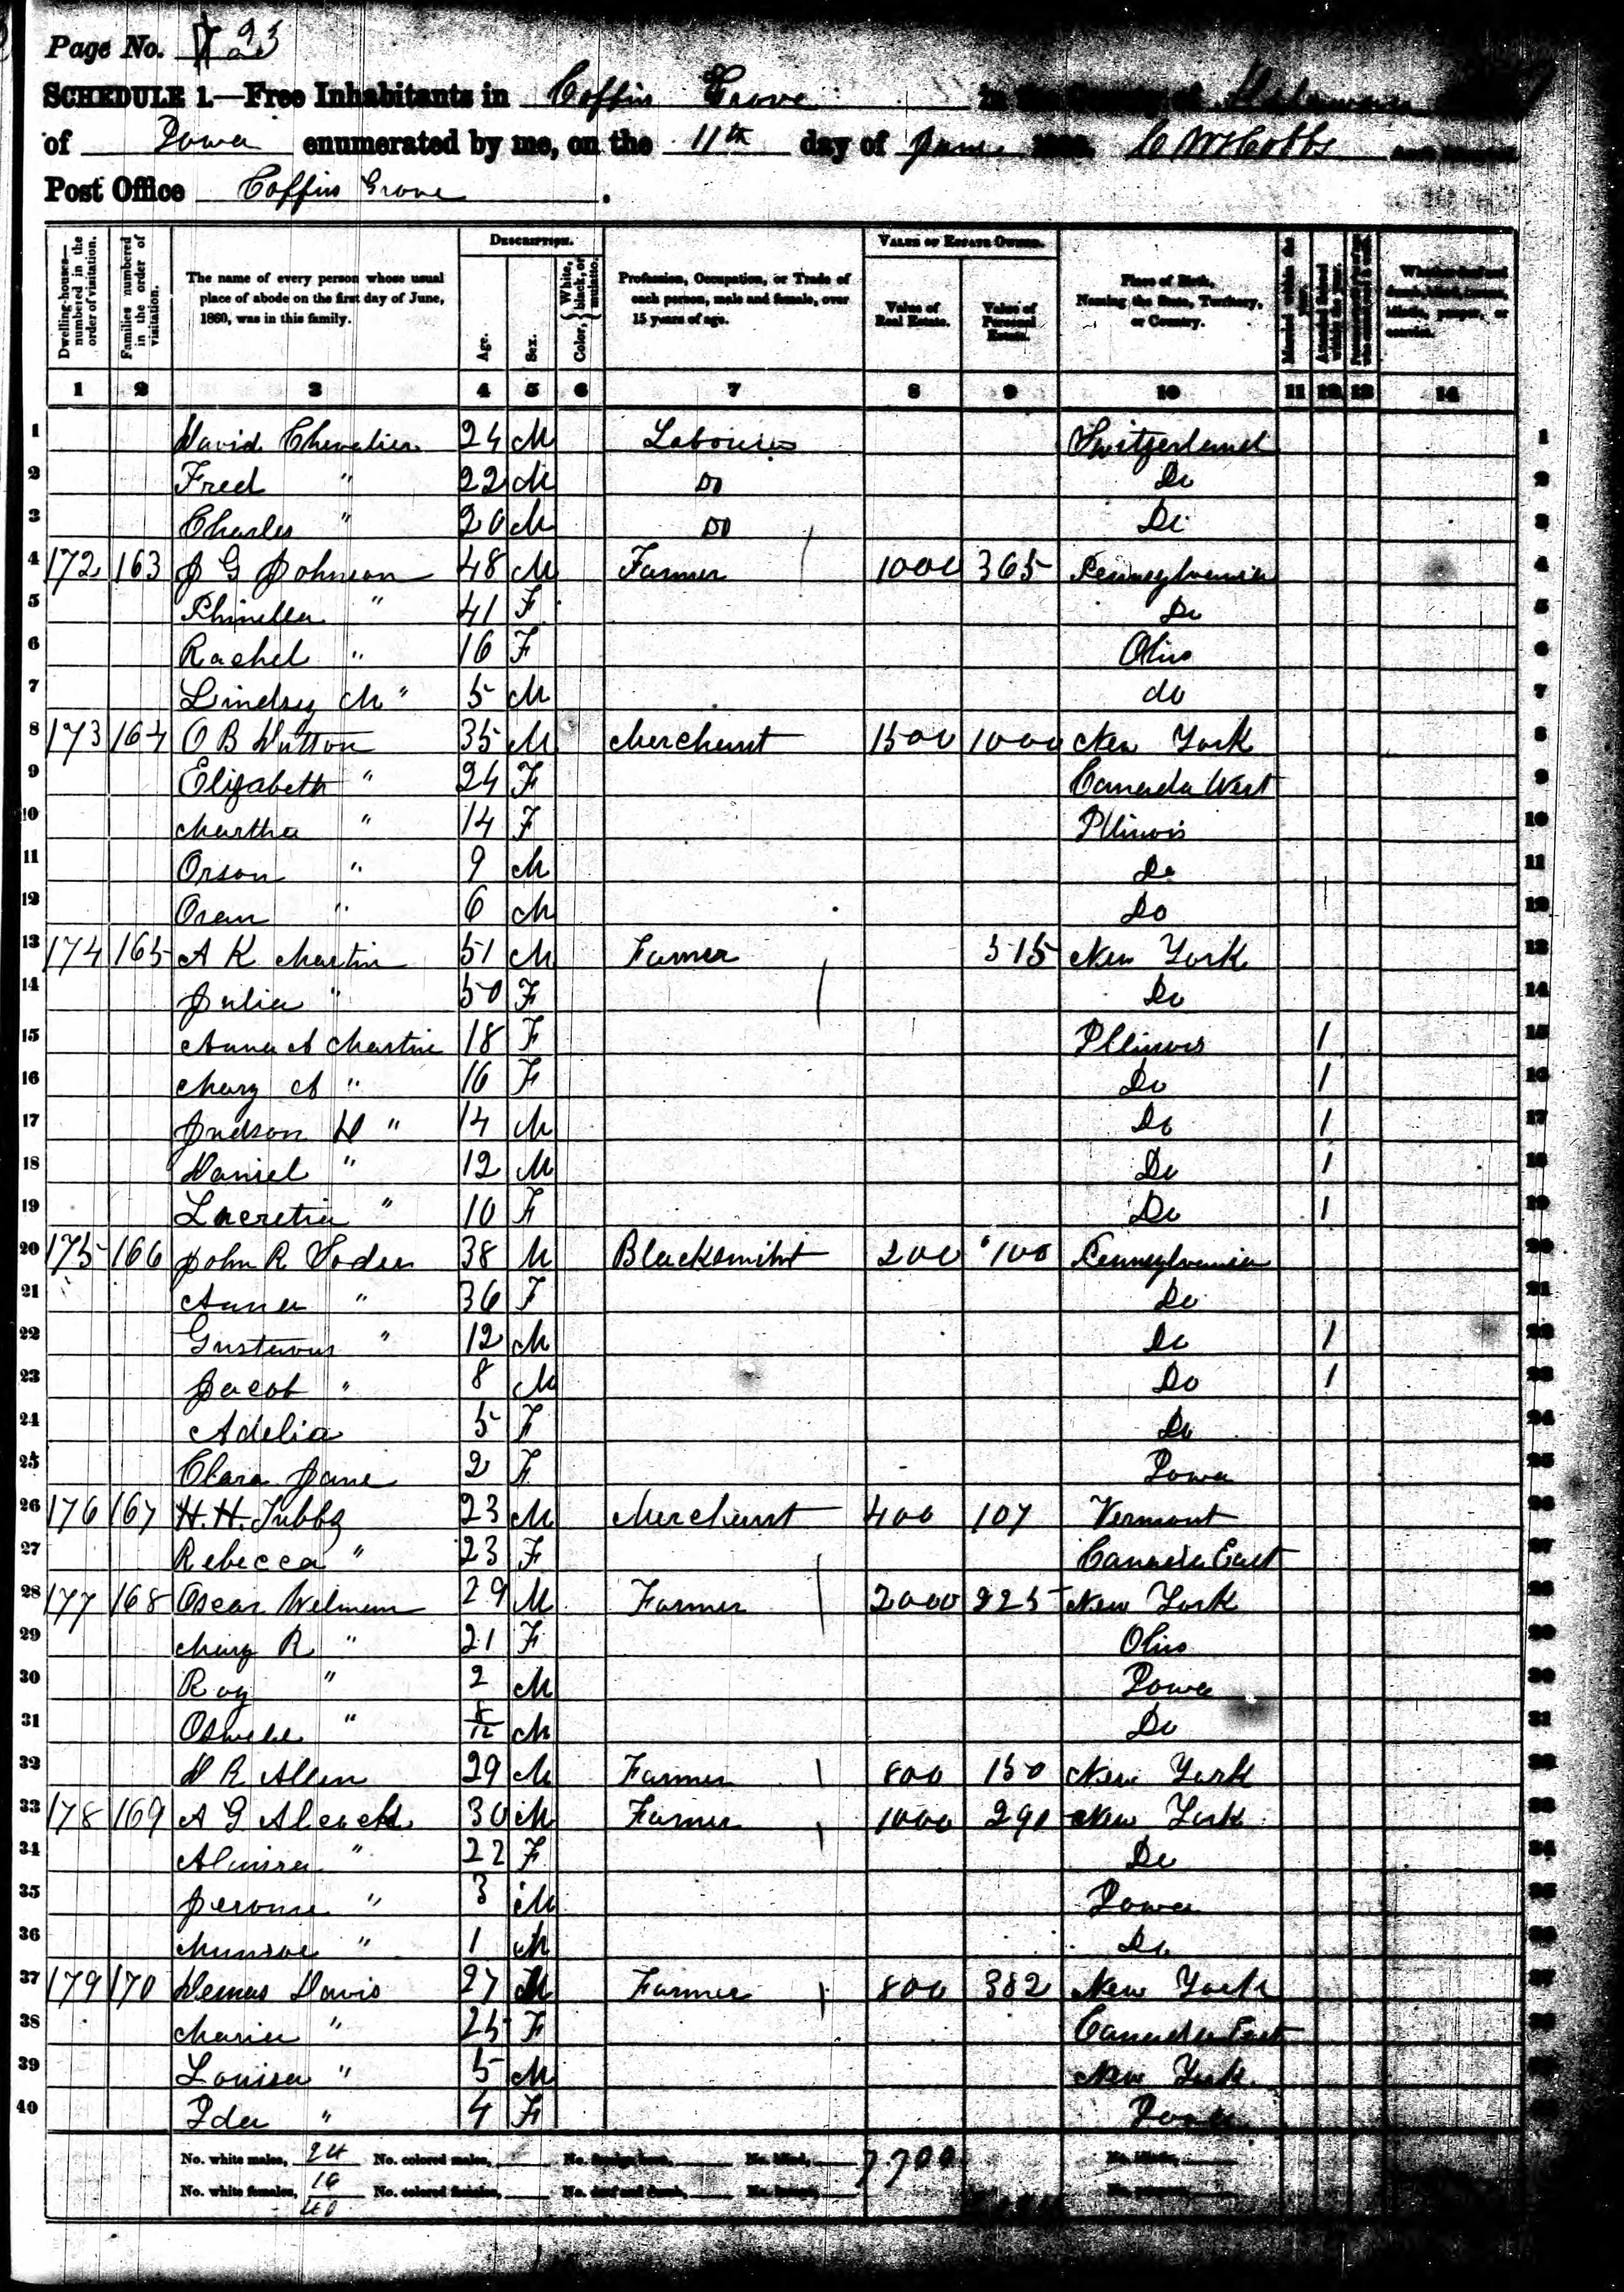 Page No. 23
SCHEDULE 1.—Free Inhabitants in Coffins Grove in the County of Delaware
of Iowa enumerated by me, on the 11th day of June 1860.
Post Office Coffins Grove.
Dwelling-houses—numbered in the order of visitation. Families numbered in the order of visitation. The name of every person whose usual place of abode on the first day of June, 1860, was in this family. DESCRIPTION. Age. Sex. Color, {White, black, or mulatto. Profession, Occupation, or Trade of each person, male and female, over 15 years of age. VALUE OF ESTATE OWNED. Value of Real Estate. Value of Personal Estate. Place of Birth, Naming the State, Territory, or Country. Married within the year. Attended School within the year.
1 2 3 4 5 6 7 8 9 10 11 12 13 14
1 David Chevalier 24 M Labourer Switzerland 1
2 Fred " 22 M Do Do 2
3 Charles " 20 M Do Do 3
4 172 163 J G Johnson 48 M Farmer 1000 365 Pennsylvania 4
5 " 41 F Do 5
6 Rachel " 16 F Ohio 6
7 Lindsey M " 5 M do 7
8 173 164 O B Dutton 35 M Merchant 1500 1000 New York 8
9 Elizabeth " 24 F Canada West 9
10 Martha " 14 F Illinois 10
11 Orson " 9 M Do 11
12 Oren " 6 M Do 12
13 174 165 A K Martin 51 M Farmer 515 New York 13
14 Julia " 50 F Do 14
15 Anna A Martin 18 F Illinois 1 15
16 Mary A " 16 F Do 1 16
17 Judson D " 14 M Do 1 17
18 Daniel " 12 M Do 1 18
19 Lucretia " 10 F Do 1 19
20 175 166 John R 38 M Blacksmith 200 100 Pennsylvania 20
21 Anna " 36 F Do 21
22 Gustavus " 12 M Do 1 22
23 Jacob " 8 M Do 1 23
24 Adelia 5 F Do 24
25 Clara Jane 2 F Iowa 25
26 176 167 H. H. Tubbs 23 M Merchant 400 107 Vermont 26
27 Rebecca " 23 F Canada East 27
28 177 168 Oscar Welman 29 M Farmer 2000 225 New York 28
29 Mary R " 21 F Ohio 29
30 Roy " 2 M Iowa 30
31 " M Do 31
32 D R Allen 29 M Farmer 800 150 New York 32
33 178 169 A G 30 M Farmer 1000 290 New York 33
34 Almira " 22 F Do 34
35 Jerome " 3 M Iowa 35
36 Munroe " 1 M Do 36
37 179 170 Demas Davis 27 M Farmer 800 382 New York 37
38 Maria " 25 F Canada East 38
39 Louisa " 5 M New York 39
40 Ida " 4 F Iowa
No. white males, 24 No. colored males, No. foreign born, No. blind, 7700
No. white females, 16 No. colored females, No. deaf and dumb,
40